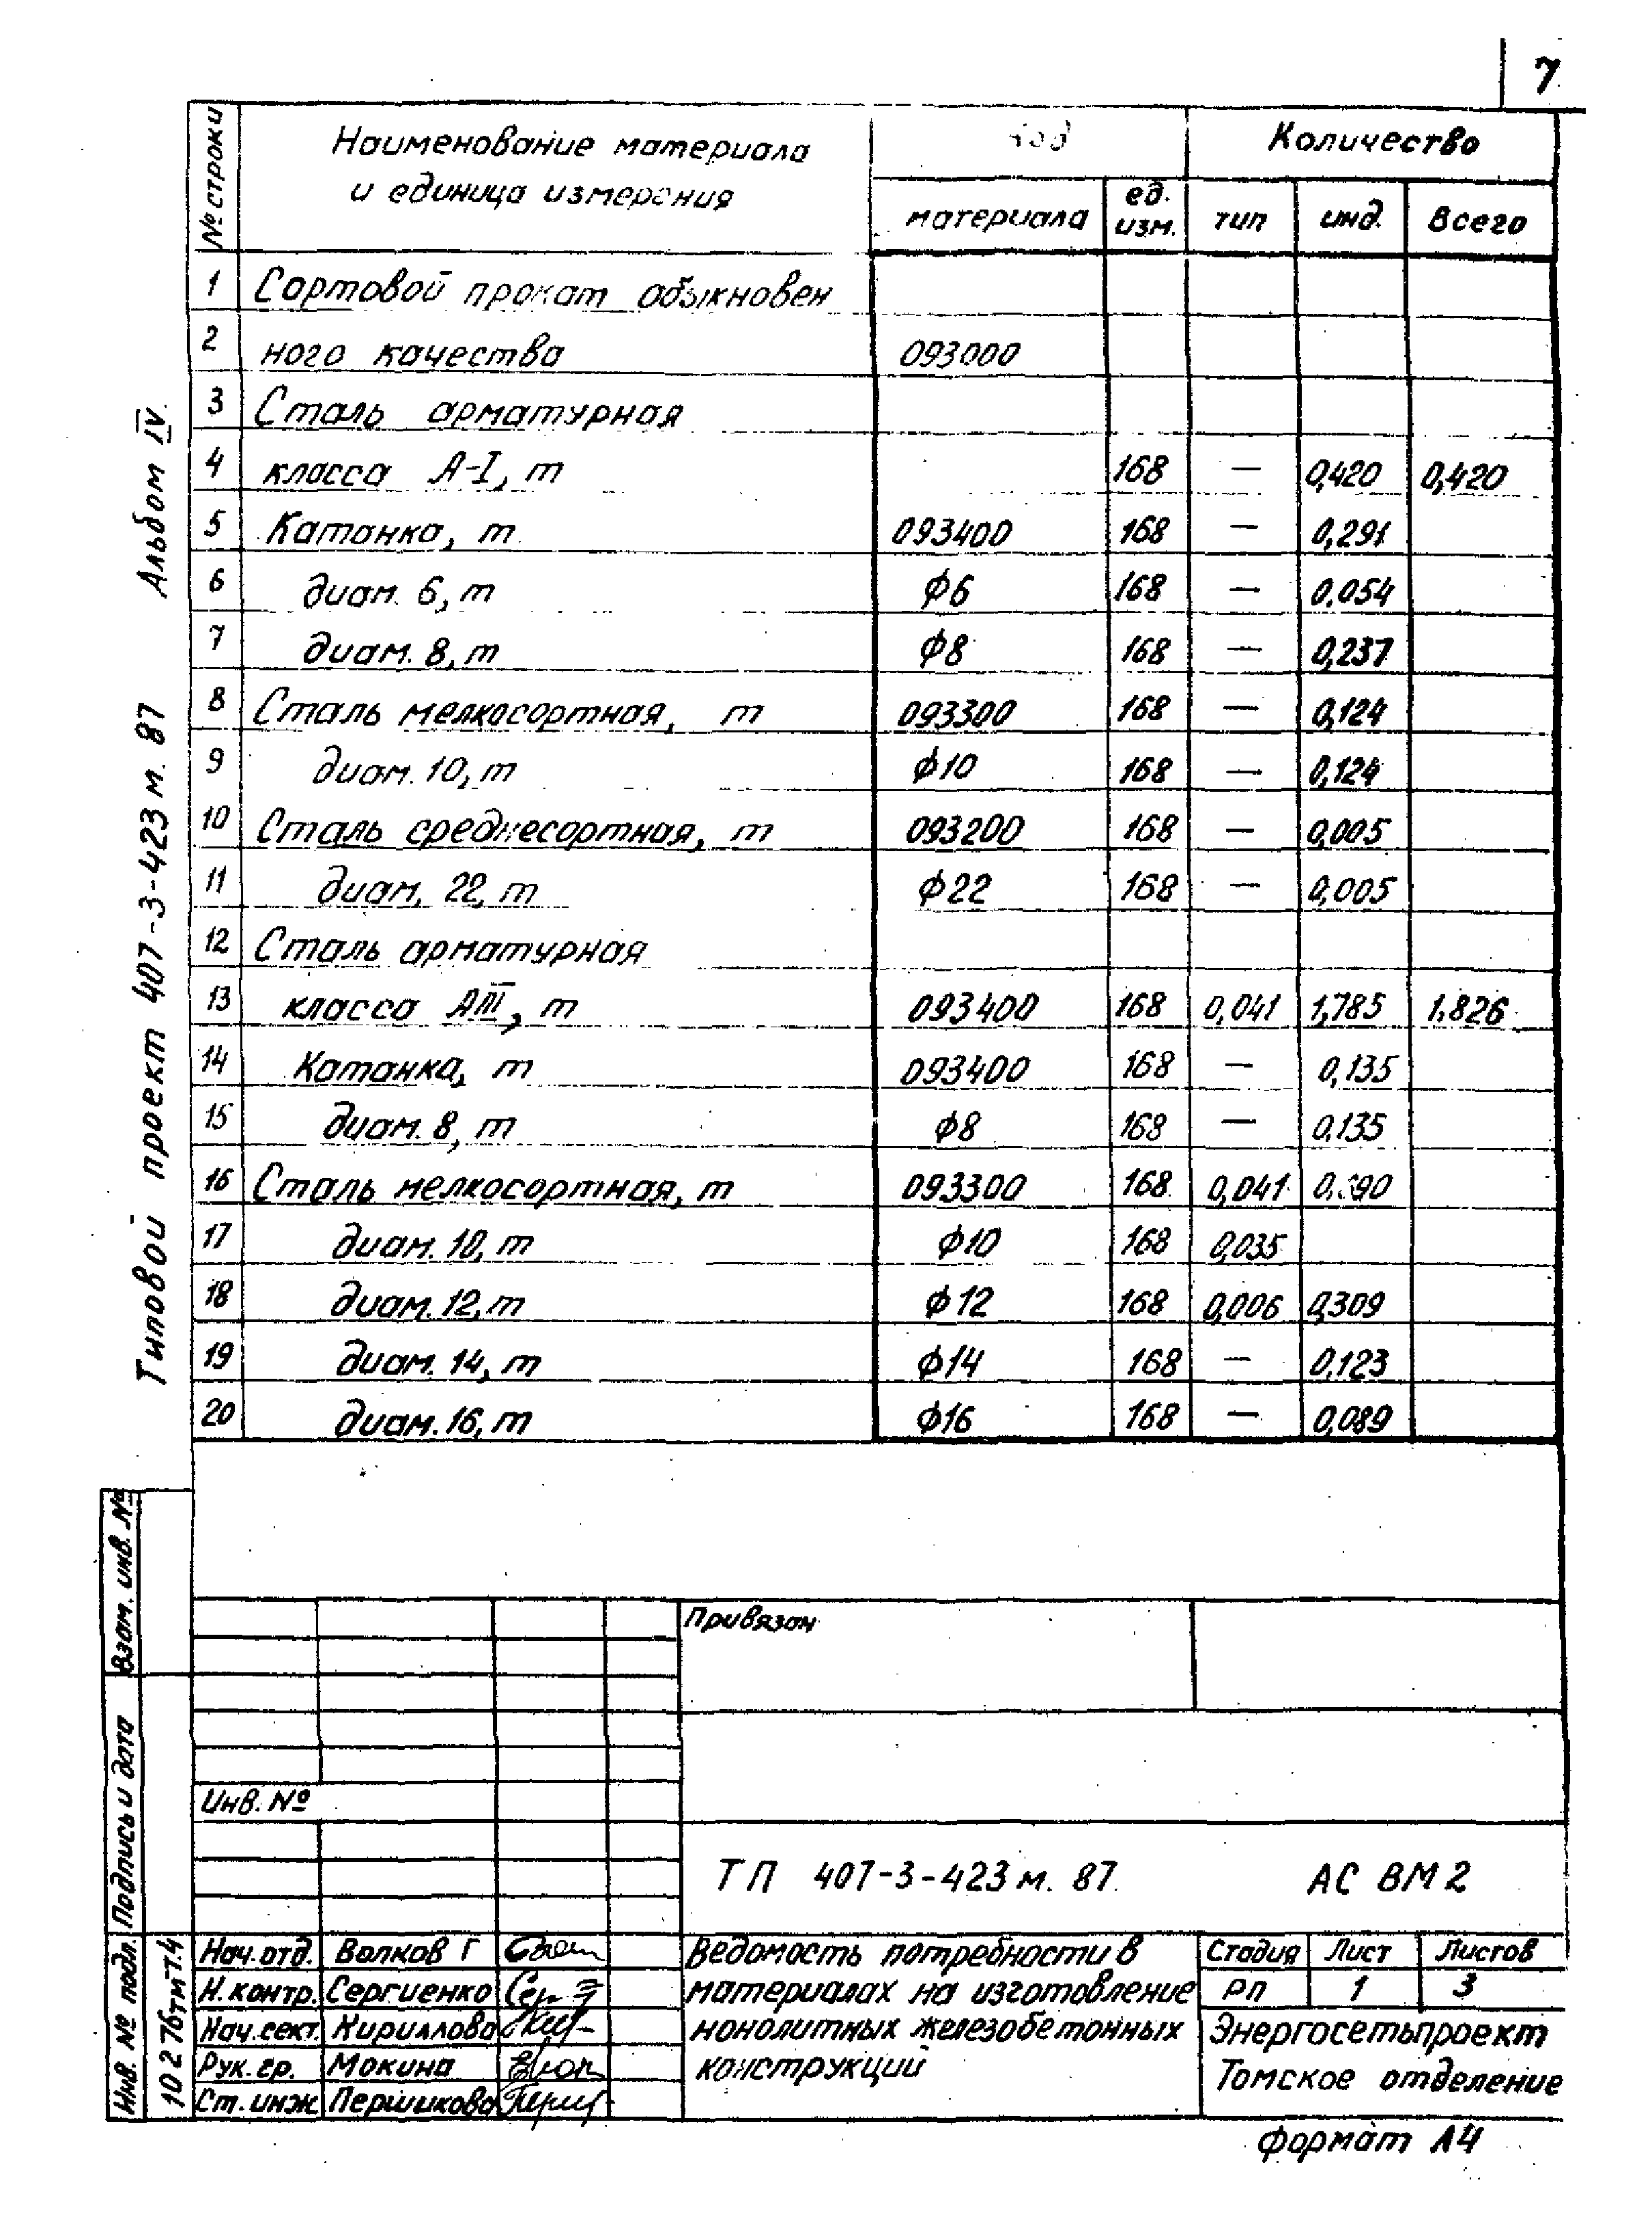 7
№ строки
Наименование материала
и единица измерения
Код
Количество
материала
ед. изм.
тип
инд.
Всего
1 Сортовой прокат обыкновен
2 ного качества 093000
3 Сталь арматурная
4 класса А-I, т 168 — 0,420 0,420
5 Катанка, т 093400 168 — 0,291
6 диам. 6, т ф6 168 — 0.054
7 диам. 8, т ф8 168 — 0,237
8 Сталь мелкосортная, т 093300 168 — 0,124
9 диам. 10, т ф10 168 — 0,124
10 Сталь среднесортная, т 093200 168 — 0,005
11 диам. 22, т ф22 168 — 0,005
12 Сталь арматурная
13 класса АIII, т 093400 168 0,041 1,785 1.826
14 Катанка, т 093400 168 — 0,135
15 диам. 8, т ф8 168 — 0,135
16 Сталь мелкосортная, т 093300 168 0,041
17 диам. 10, т ф10 168 0,035
18 диам. 12, т ф12 168 0,006 0,309
19 диам. 14, т ф14 168 — 0,123
20 диам. 16, т ф16 168 — 0,089
Типовой проект 407-3-423 м. 87 Альбом IV.
Взам. инв. №
Подпись и дата
Инв. № подл.
10276тм-т.4
Привязан
Инв. №
ТП 407-3-423 м. 87. АС ВМ2
Нач. отд. Волков Г
Н. контр. Сергиенко
Нач. сект. Кириллова
Рук. гр. Мокина
Ст. инж Першикова
Ведомость потребности в
материалах на изготовление
монолитных железобетонных
конструкций
Стадия Лист Листов
РП 1 3
Энергосетьпроект
Томское отделение
формат А4